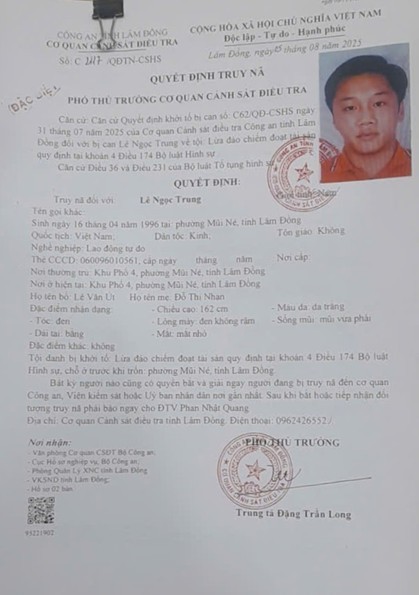 CÔNG AN TỈNH LÂM ĐỒNG
CƠ QUAN CẢNH SÁT ĐIỀU TRA
CỘNG HÒA XÃ HỘI CHỦ NGHĨA VIỆT NAM
Độc lập - Tự do - Hạnh phúc
Số: C /QĐTN-CSHS
Lâm Đồng, ngày 15 tháng 08 năm 2025
ĐẶC BIỆT
QUYẾT ĐỊNH TRUY NÃ
PHÓ THỦ TRƯỞNG CƠ QUAN CẢNH SÁT ĐIỀU TRA
Căn cứ: Căn cứ Quyết định khởi tố bị can số: C62/QĐ-CSHS ngày
31 tháng 07 năm 2025 của Cơ quan Cảnh sát điều tra Công an tỉnh Lâm
Đồng đối với bị can Lê Ngọc Trung về tội: Lừa đảo chiếm đoạt tài sản
quy định tại khoản 4 Điều 174 Bộ luật Hình sự
Căn cứ Điều 36 và Điều 231 của Bộ luật Tố tụng hình sự
QUYẾT ĐỊNH:
Truy nã đối với: Lê Ngọc Trung Giới tính: Nam
Tên gọi khác:
Sinh ngày 16 tháng 04 năm 1996 tại: phường Mũi Né, tỉnh Lâm Đồng
Quốc tịch: Việt Nam; Dân tộc: Kinh; Tôn giáo: Không
Nghề nghiệp: Lao động tự do
Thẻ CCCD: 060096010561; cấp ngày tháng năm Nơi cấp:
Nơi thường trú: Khu Phố 4, phường Mũi Né, tỉnh Lâm Đồng
Nơi ở hiện tại: Khu Phố 4, phường Mũi Né, tỉnh Lâm Đồng
Họ tên bố: Lê Văn Út Họ tên mẹ: Đỗ Thị Nhạn
Đặc điểm nhận dạng: - Chiều cao: 162 cm - Màu da: da trắng
- Tóc: đen - Lông mày: đen không rậm - Sống mũi: mũi vừa phải
- Dái tai: bằng - Mắt: mắt nhỏ
Đặc điểm khác: không
Tội danh bị khởi tố: Lừa đảo chiếm đoạt tài sản quy định tại khoản 4 Điều 174 Bộ luật
Hình sự, chỗ ở trước khi trốn: phường Mũi Né, tỉnh Lâm Đồng.
Bất kỳ người nào cũng có quyền bắt và giải ngay người đang bị truy nã đến cơ quan
Công an, Viện kiểm sát hoặc Uỷ ban nhân dân nơi gần nhất. Sau khi bắt hoặc tiếp nhận đối
tượng truy nã phải báo ngay cho ĐTV Phan Nhật Quang
Địa chỉ: Cơ quan Cảnh sát điều tra tỉnh Lâm Đồng. Điện thoại: 0962426552 /.
Nơi nhận:
- Văn phòng Cơ quan CSĐT Bộ Công an;
- Cục Hồ sơ nghiệp vụ, Bộ Công an;
- Phòng Quản Lý XNC tỉnh Lâm Đồng;
- VKSND tỉnh Lâm Đồng;
- Hồ sơ 02 bản.
PHÓ THỦ TRƯỞNG
Trung tá Đặng Trần Long
93221902